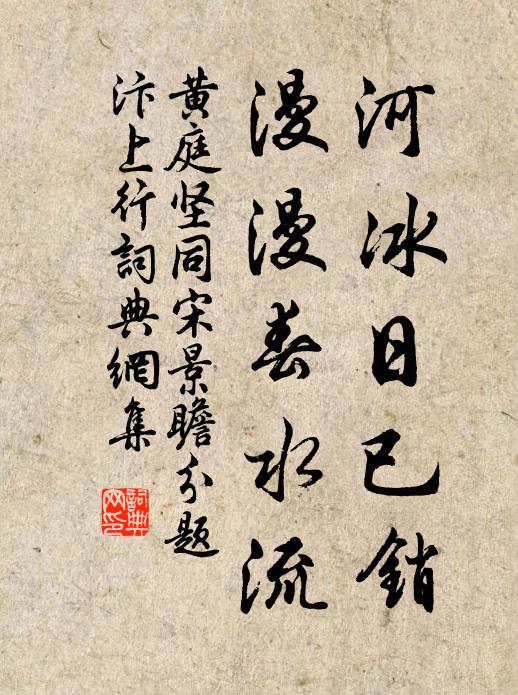 河冰日已銷
漫漫春水流
黄庭坚同宋景瞻分题
汴上行詞典網集
詞典
网印